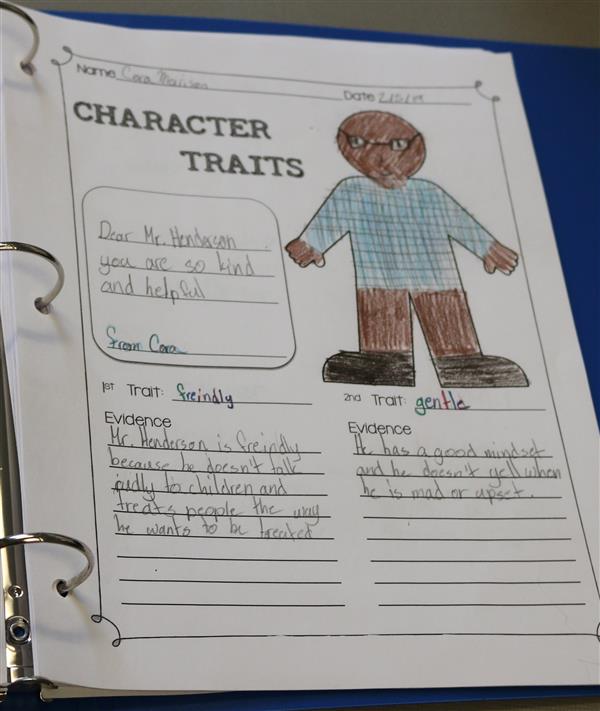 Name Cora Morison
Date 2/5/19
CHARACTER
TRAITS
Dear Mr. Henderson
you are so kind
and helpful
from Cora
1st Trait: freindly
Evidence
Mr. Henderson is freindly
because he doesn't talk
rudly to children and
treats people the way
he wants to be treated
2nd Trait: gentle
Evidence
He has a good mindset
and he doesn't yell when
he is mad or upset.